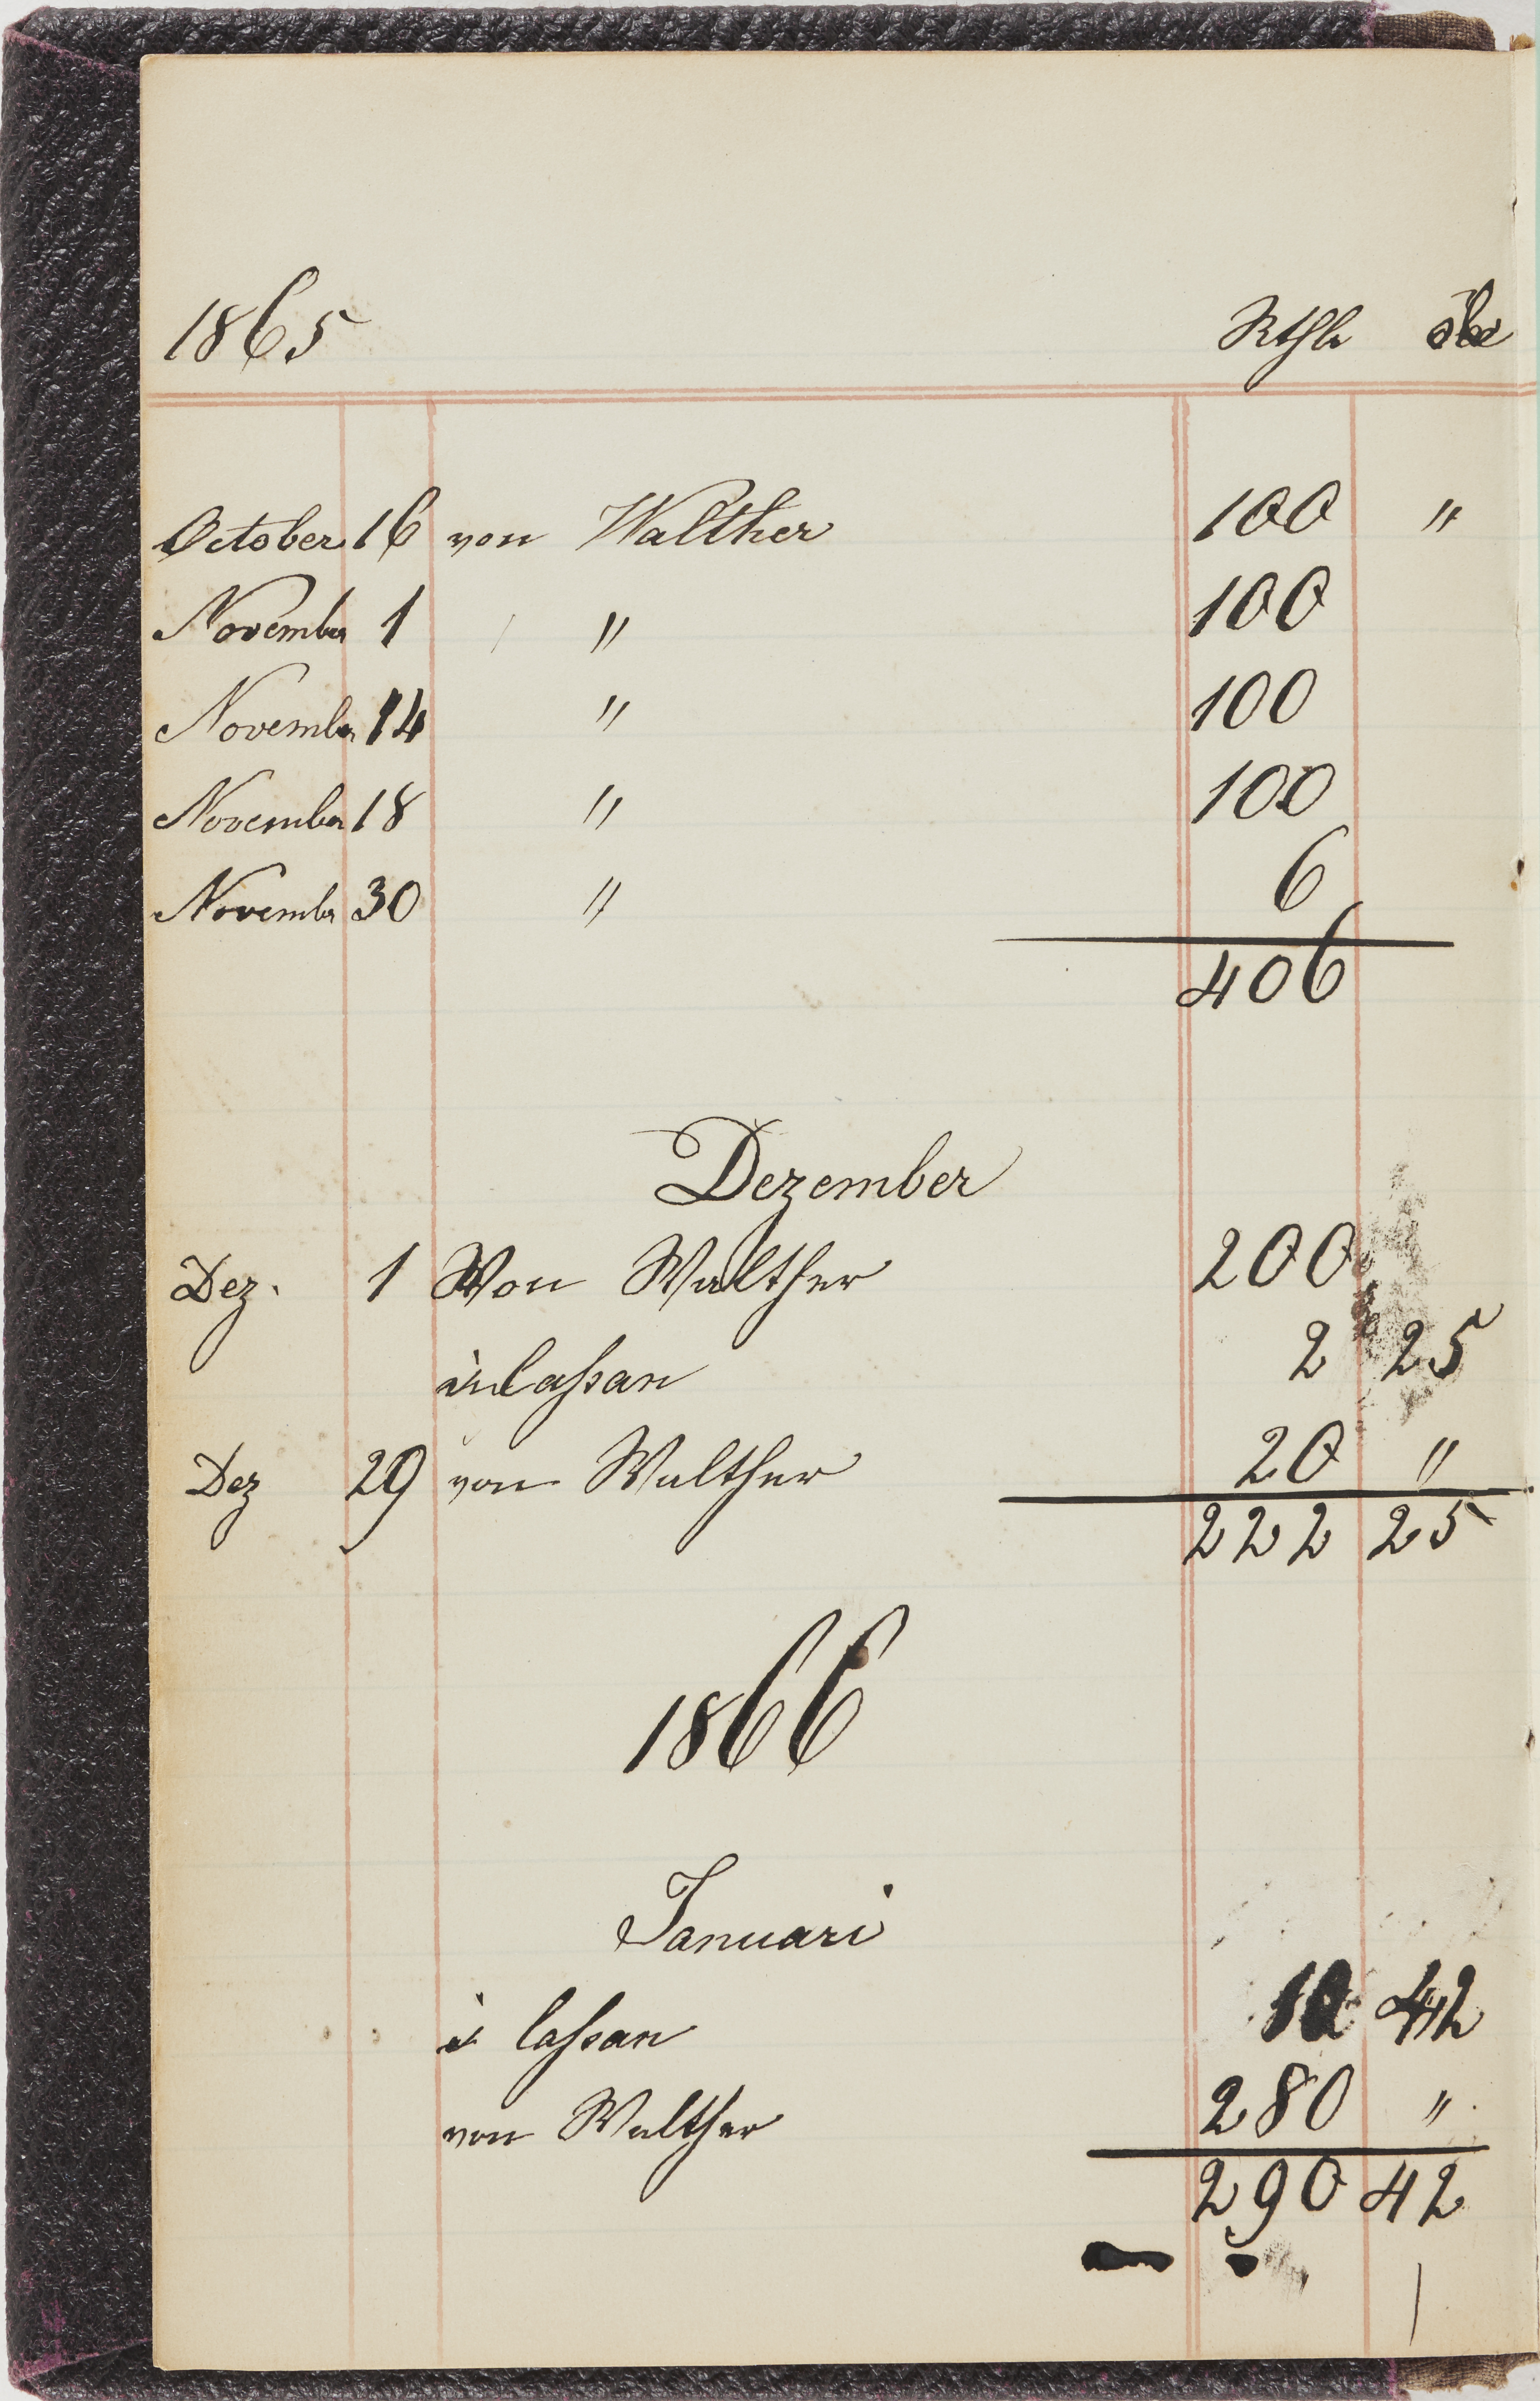 1865 Rthlr öre
October 16 von Walther 100 "
November 1 " 100
November 14 " 100
November 18 " 100
November 30 " 6
406
Dezember
Dez. 1 Von Walther 200
in Cassan 2 25
Dez 29 von Walther 20 "
222 25
1866
Januari
i Cassan 10 42
von Walther 280 "
290 42